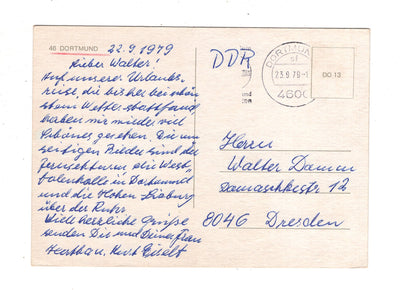 46 DORTMUND 22.9.1979
Lieber Walter!
Auf unserer Urlaubs-
reise, die bis her bei schön
stem Wetter stattfand
haben wir wieder viel
Schönes gesehen. Die um
seitigen Bilder sind der
Fernsehturm die West
falenhalle in Dortmund
und die Hohen Syburg
über der Ruhr.
Viele herzliche Grüße
senden Dir und Deiner Frau
Kurt
DDR
DORTMUND
sf
23.9.79-1
4600
DO 13
Herrn
Walter Damm
Damaschkestr 12
8046 Dresden